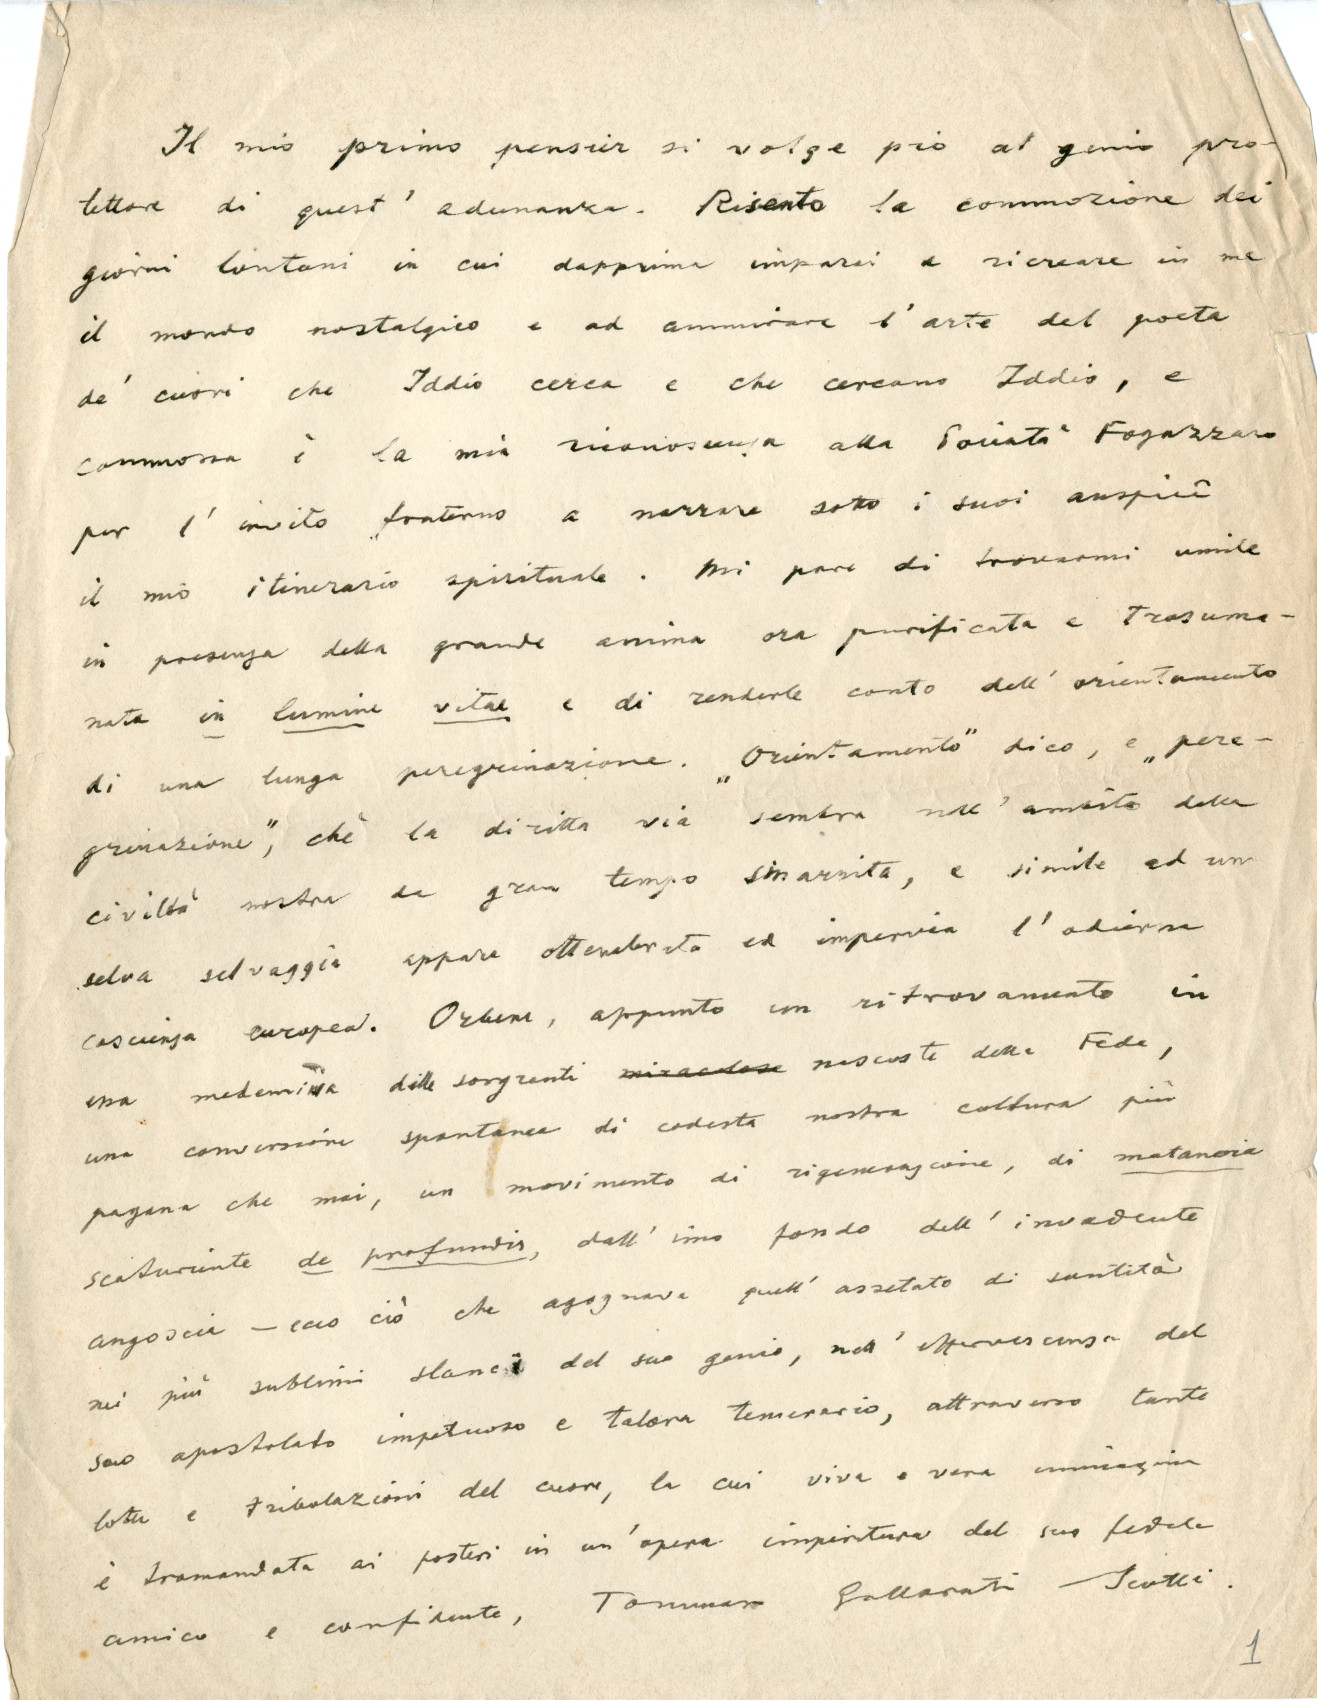 Il mio primo pensier si volge pio al genio pro-
tettore di quest' adunanza. Risento la commozione dei
giorni lontani in cui dapprima imparai a ricreare in me
il mondo nostalgico e ad ammirare l'arte del poeta
de' cuori che Iddio cerca e che cercano Iddio, e
commossa è la mia riconoscenza alla Società Fogazzaro
per l'invito fraterno a narrare sotto i suoi auspici
il mio itinerario spirituale. Mi pare di trovarmi umile
in presenza della grande anima ora purificata e trasuma-
nata in lumine vitae e di renderle conto dell' orientamento
di una lunga peregrinazione. „Orientamento" dico, e „pere-
grinazione", chè la diritta via sembra nell'ambito della
civiltà nostra da gran tempo smarrita, e simile ad una
selva selvaggia appare ottenebrata ed impervia l'odierna
coscienza europea. Orbene, appunto un ritrovamento in
essa medesima delle sorgenti miracolose nascoste della Fede,
una conversione spontanea di codesta nostra coltura più
pagana che mai, un movimento di rigenerazione, di metanoia
scaturiente de profundis, dall' imo fondo dell' invadente
angoscia — ecco ciò che agognava quell' assetato di santità
nei più sublimi slanci del suo genio, nell' effervescenza del
suo apostolato impetuoso e talora temerario, attraverso tante
lotte e tribolazioni del cuore, la cui viva e vera immagine
è tramandata ai posteri in un' opera imperitura del suo fedele
amico e confidente, Tommaso Gallarati-Scotti.
1